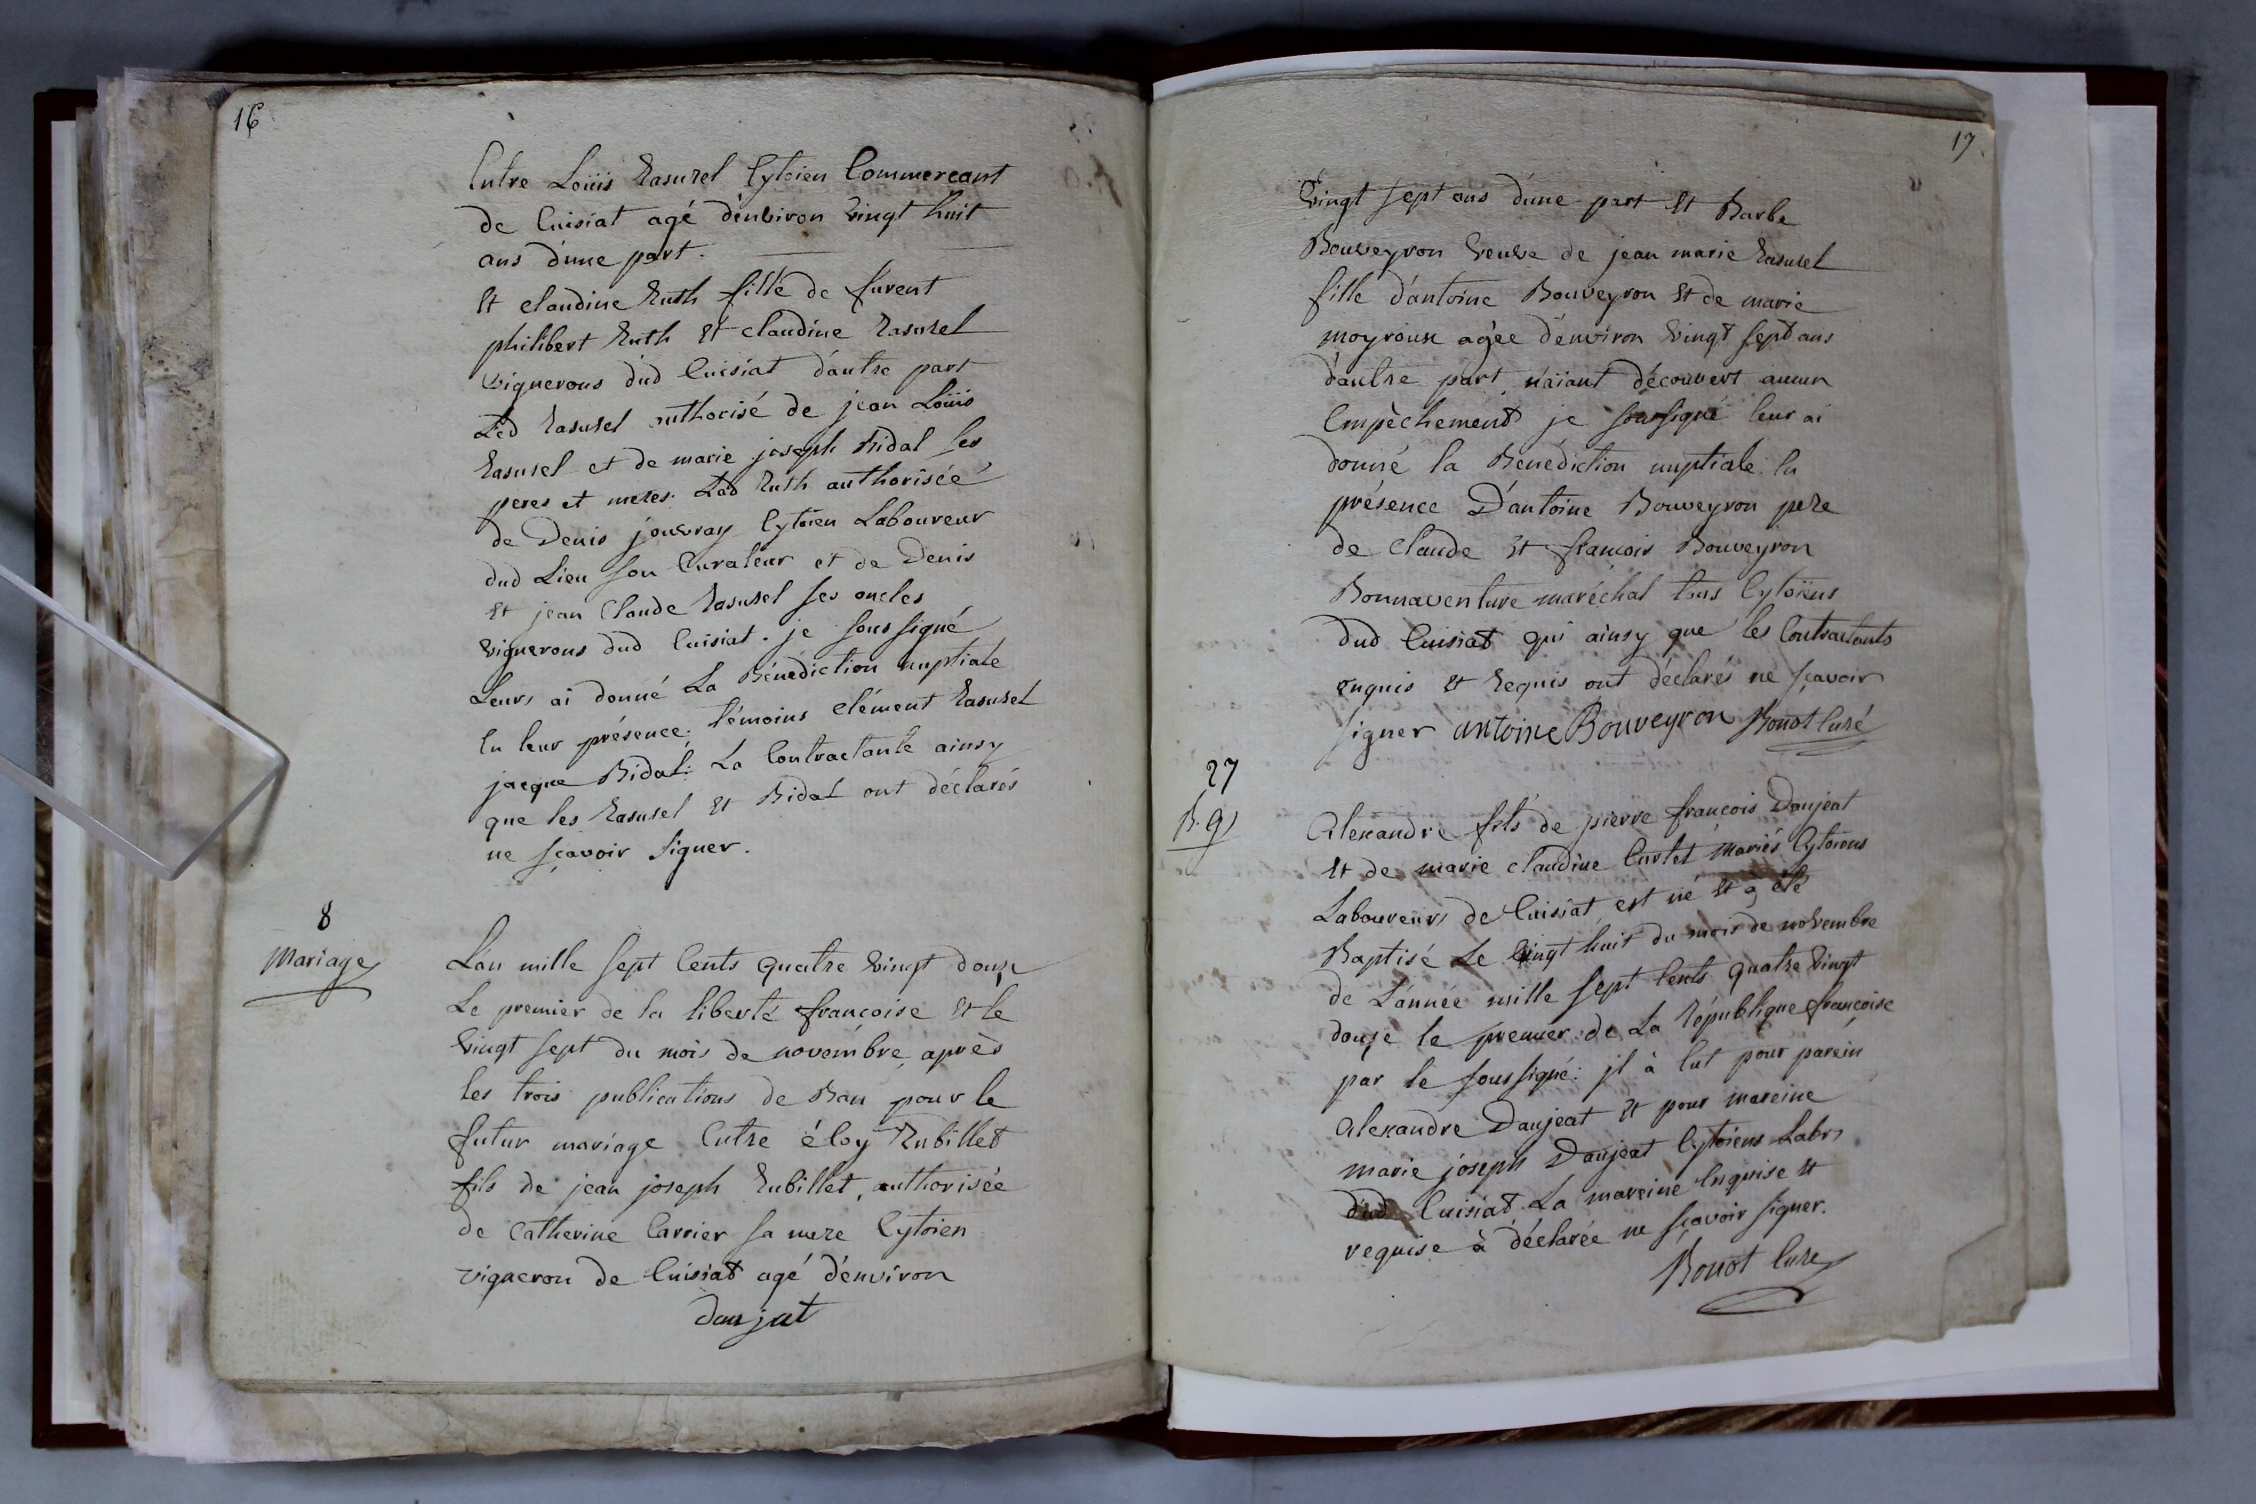 16
Entre Loüis Rasurel Cytoien Commercant
de Cuisiat agé d'environ vingt huit
ans d'une part.
Et claudine Ruth fille de furent
philibert Ruth Et claudine Rasurel
vignerons dud Cuisiat d'autre part
Led Rasurel authorisé de jean Loüis
Rasurel et de marie joseph Bidal ses
peres et meres. Lad Ruth authorisée
de Denis jouvray Cytoien Laboureur
dud Lieu son Curateur et de Denis
Et jean Claude Rasurel ses oncles
vignerons dud Cuisiat. je sous signé
Leurs ai donné La Bénédiction nuptiale
En leur présence; témoins clément Rasurel
jacque Bidal: La Contractante ainsy
que les Rasurel Et Bidal ont déclarés
ne sçavoir signer.
8
Mariage
L'an mille sept Cents quatre vingt douze
Le premier de la liberté francoise Et le
vingt sept du mois de novembre, après
les trois publications de Ban pour le
futur mariage Entre éloy Rubillet
fils de jean joseph Rubillet, authorisée
de Catherine Carrier sa mere Cytoien
vigneron de Cuisiat agé d'environ
Daujat
17
vingt sept ans d'une part Et Barbe
Bouveyron veuve de jean marie Rasurel
fille d'antoine Bouveyron Et de marie
moyroux agée d'environ vingt sept ans
d'autre part, n'aïant découvert aucun
Empêchement je soussigné leur ai
donné la Benédiction nuptiale En
présence D'antoine Bouveyron pere
de Claude Et francois Bouveyron
Bonnaventure maréchal tous Cytoïens
dud Cuisiat qui ainsy que les Contractants
enquis Et Requis ont déclarés ne sçavoir
signer antoine Bouveyron Bonot Curé
27
B. g
Alexandre fils de pierre francois Daujeat
Et de marie claudine Curtet Mariés Cytoiens
Laboureurs de Cuisiat est né Et a été
Baptisé Le vingt huit du mois de novembre
de L'année mille sept Cents quatre vingt
douze le premier de La République françoise
par le sous signé: jl à Eut pour parein
Alexandre Daujeat Et pour mareine
Marie joseph Daujeat Cytoiens Labrs
dud Cuisiat La mareine Enquise Et
requise à déclarée ne sçavoir signer.
Bonot Curé